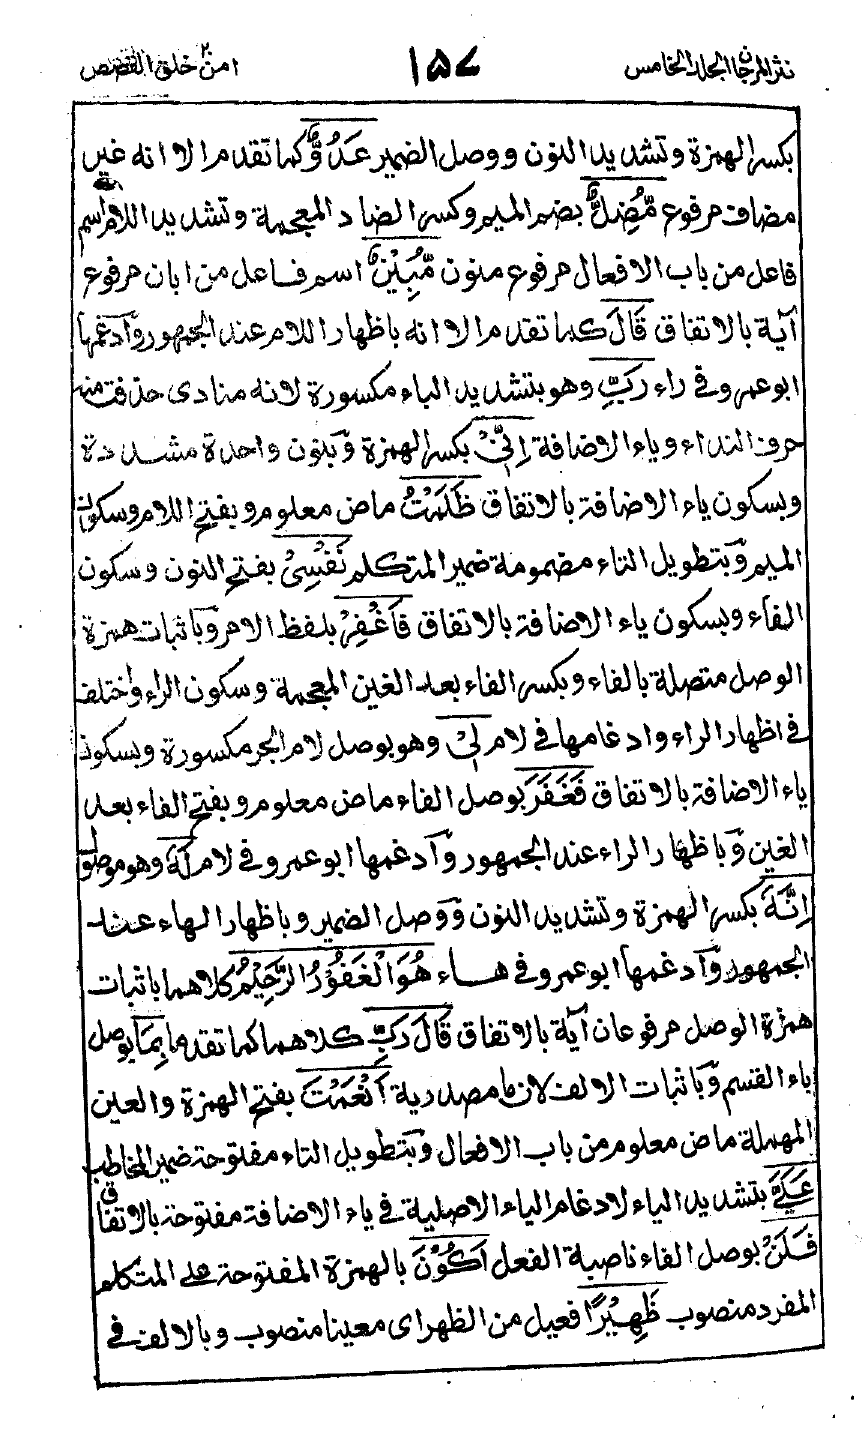 نثر المرجان المجلد الخامس ١٥٧ امن خلق ٢٠ القصص
بكسر الهمزة وتشديد النون ووصل الضمير عَدُوٌّ كما تقدم الا انه غير
مضاف مرفوع مُّضِلٌّ بضم الميم وكسر الضاد المعجمة وتشديد اللام اسم
فاعل من باب الافعال مرفوع منون مُّبِيْنٌ اسم فاعل من ابان مرفوع
آية بالاتفاق قَالَ كما تقدم الا انه باظهار اللام عند الجمهور وآدغمها
ابو عمرو في راء رَبِّ وهو بتشديد الباء مكسورة لانه منادى حذفت منه
حرف النداء وياء الاضافة اِنِّيْ بكسر الهمزة وبنون واحدة مشددة
وبسكون ياء الاضافة بالاتفاق ظَلَمْتُ ماض معلوم وبفتح اللام وسكون
الميم وبتطويل التاء مضمومة ضمير المتكلم نَفْسِيْ بفتح النون وسكون
الفاء وبسكون ياء الاضافة بالاتفاق فَاغْفِرْ بلفظ الامر وباثبات همزة
الوصل متصلة بالفاء وبكسر الفاء بعد الغين المعجمة وسكون الراء واختلف
في اظهار الراء وادغامها في لام لِيْ وهو بوصل لام الجر مكسورة وبسكون
ياء الاضافة بالاتفاق فَغَفَرَ بوصل الفاء ماض معلوم وبفتح الفاء بعد
الغين وباظهار الراء عند الجمهور وآدغمها ابو عمرو في لام لَهُ وهو موصول
اِنَّهُ بكسر الهمزة وتشديد النون ووصل الضمير وباظهار الهاء عند
الجمهور وآدغمها ابو عمرو في هاء هُوَ الْغَفُوْرُ الرَّحِيْمُ كلاهما باثبات
همزة الوصل مرفوعان آية بالاتفاق قَالَ رَبِّ كلاهما كما تقدما بِمَا بوصل
باء القسم وباثبات الالف لان ما مصدرية اَنْعَمْتَ بفتح الهمزة والعين
المهملة ماض معلوم من باب الافعال وبتطويل التاء مفتوحة ضمير المخاطب
عَلَيَّ بتشديد الياء لادغام الياء الاصلية في ياء الاضافة مفتوحة بالاتفاق
فَلَنْ بوصل الفاء ناصبة الفعل اَكُوْنَ بالهمزة المفتوحة على المتكلم
المفرد منصوب ظَهِيْرًا فعيل من الظهر اى معينا منصوب وبالالف في